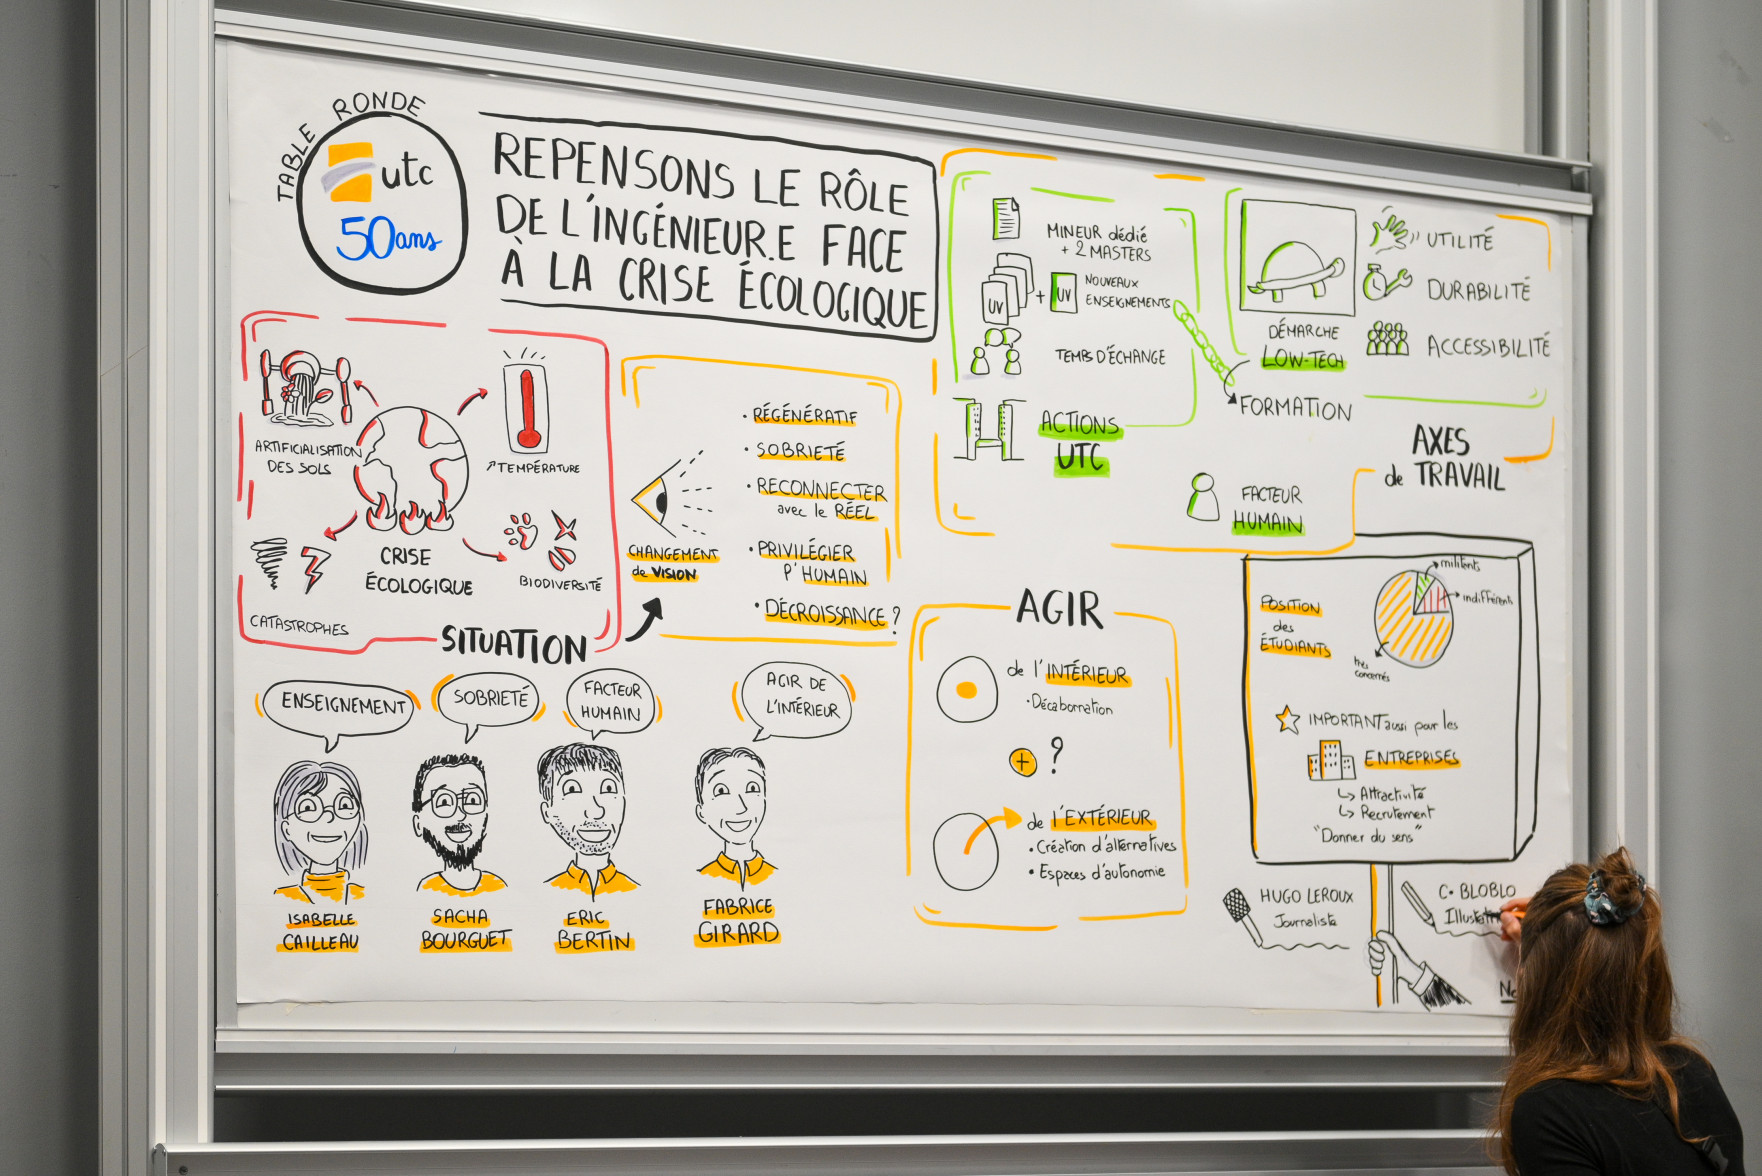 TABLE RONDE
utc
50ans
REPENSONS LE RÔLE
DE L'INGÉNIEUR.E FACE
À LA CRISE ÉCOLOGIQUE
ARTIFICIALISATION
DES SOLS
↗TEMPÉRATURE
CRISE
ÉCOLOGIQUE
BIODIVERSITÉ
CATASTROPHES
SITUATION
CHANGEMENT
de VISION
• RÉGÉNÉRATIF
• SOBRIETÉ
• RECONNECTER
avec le RÉEL
• PRIVILÉGIER
l'HUMAIN
• DÉCROISSANCE ?
MINEUR dédié
+ 2 MASTERS
UV
+
UV
NOUVEAUX
ENSEIGNEMENTS
TEMPS D'ÉCHANGE
ACTIONS
UTC
DÉMARCHE
LOW-TECH
UTILITÉ
DURABILITÉ
ACCESSIBILITÉ
FORMATION
FACTEUR
HUMAIN
AXES
de TRAVAIL
AGIR
de l'INTÉRIEUR
• Décabornation
+ ?
de l'EXTÉRIEUR
• Création d'alternatives
• Espaces d'autonomie
POSITION
des
ÉTUDIANTS
militants
indifférents
très
concernés
IMPORTANT aussi pour les
ENTREPRISES
↳ Attractivité
↳ Recrutement
"Donner du sens"
ENSEIGNEMENT
SOBRIETÉ
FACTEUR
HUMAIN
AGIR DE
L'INTÉRIEUR
ISABELLE
CAILLEAU
SACHA
BOURGUET
ERIC
BERTIN
FABRICE
GIRARD
HUGO LEROUX
Journaliste
C. BLOBLO